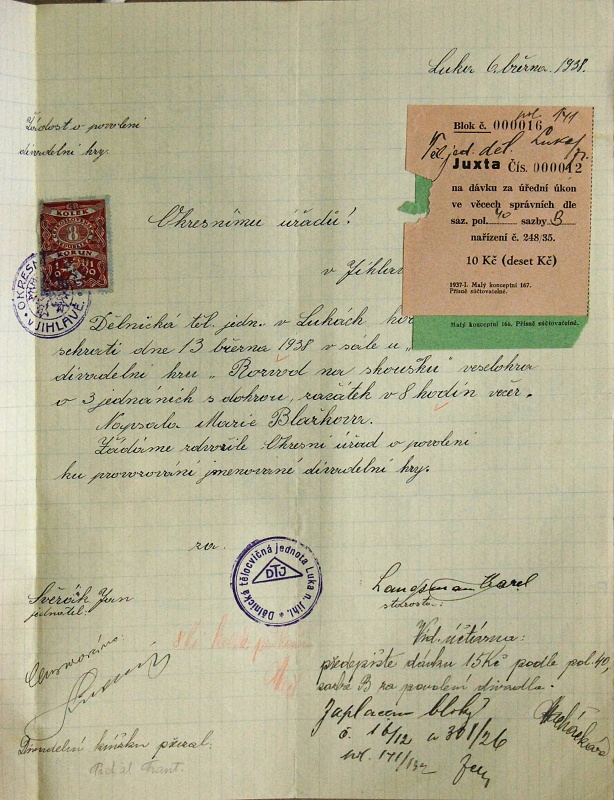 Luka 6. března. 1938.
Žádost o povolení
divadelní hry.
Okresnímu úřadu!
v Jihlavě
KOLEK
8
KORUN
OKRESNÍ
V JIHLAVĚ
Blok č. 000016 pol. 171
Těl. jed. děl. Luka
Juxta Čís. 000012
na dávku za úřední úkon
ve věcech správních dle
saz. pol. 40 sazby B
nařízení č. 248/35.
10 Kč (deset Kč)
1937-I. Malý konceptní 167.
Přísně súčtovatelné.
Malý konceptní 166. Přísně súčtovatelné.
Dělnická těl. jedn. v Lukách
sehrati dne 13 března 1938 v sále u „
divadelní hru „Rozvod na zkoušku" veselohra
o 3 jednáních s dohrou, začátek v 8 hodin več.
Napsala Marie Blažkova.
Žádáme zdvořile Okresní úřad o povolení
ku provozování jmenované divadelní hry.
za
Dělnická tělocvičná jednota Luka n. Jihl.
DTJ
Svěrčík Jan
jednatel:
Langsman Karel
starosta:
Cenzurováno:
Vrd. účtárna:
předepište dávku 15 Kč podle pol. 40,
sazba B za povolení divadla.
Zaplaceno bloky
č. 16/12 a 301/26
pol. 171/
Divadelní knížku přizal: